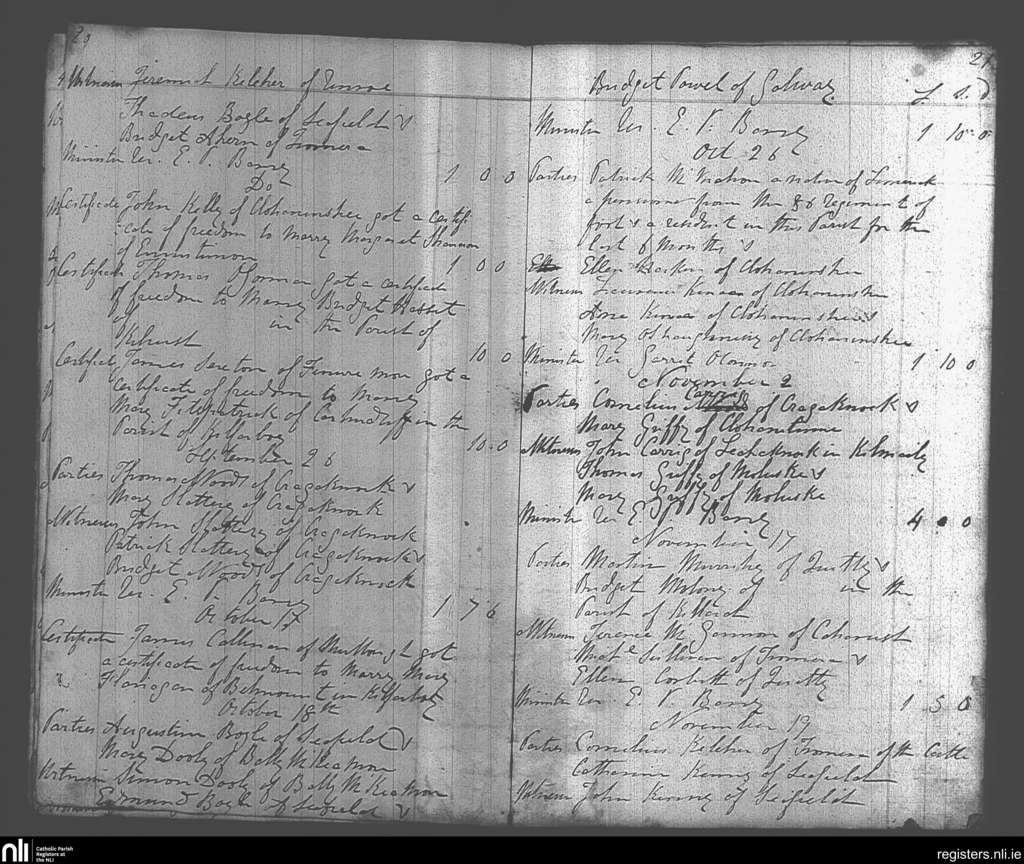 29
Witness Jeremiah Kelcher of Emroe
Thadeus Boyle of Seafield &
Bridget Ahern of Tromora
Minister Ver. E. V. Barry
1 0 0
Do
Certificate John Kelly of Clohaninshee got a certifi
cate of freedom to marry Margaret Shannon
of Ennistimon
1 0 0
Certificate Thomas OGorman got a certificate
of freedom to Marry Bridget
of in the Parish of
Kilrush
10 0
Certificate James Sexton of Finure more got a
Certificate of freedom to Marry
Mary Fitzpatrick of in the
Parish of Kilfarboy
10.0
September 26
Parties Thomas Woods of Cragaknock &
Mary Slattery of Cragaknock
Witness John Slattery of Cragaknock
Patrick Slattery of Cragaknock &
Bridget Woods of Cragaknock
Minister Ver. E. V. Barry
1 7 6
October 17
Certificate James Callinan of Mullough got
a certificate of freedom to Marry Mary
Flanagan of Belmount in Kilfarboy
October 18th
Parties Augustin Boyle of Seafield &
Mary Dooly of Bally McKea
Witness Simon Dooly of Bally McKea
Edmund Boyle of Seafield &
21
Bridget Powel of Galway
£ S. D
Minister Ver. E. V. Barry
1 10 0
Oct 26
Parties Patrick McMahon a native of Limerick
a pensioner from the 86 regiment of
foot & a resident in this Parish for the
last 6 Months &
Ellen of Clohaninshee
Witness Laurence Kinnan of Clohaninshee
Anne of Clohaninshee &
Mary OShaughnessy of Clohaninshee
Minister Ver Garret
1 10 0
November 2
Carrig
Parties Cornelius of Cragaknock &
Mary Griffy of
Witness John Carrig of in Kilmaily
Thomas Griffy of Moluske &
Mary Griffy of Moluske
Minister Ver E. V Barry
4 0 0
November 17
Parties Martin Murrihy of Quilty &
Bridget Molony of in the
Parish of Killard
Witness Terence McGannon of Caherush
Mich.l Sullivan of Tromora &
Ellen Corbett of Quilty
Minister Ver. E V Barry
1 5 0
November 19
Parties Cornelius Kelcher of Tromora of the Castle
Catharine Kenny of Seafield
Witness John Kenny of Seafield
nli
Catholic Parish
Registers at
the NLI
registers.nli.ie